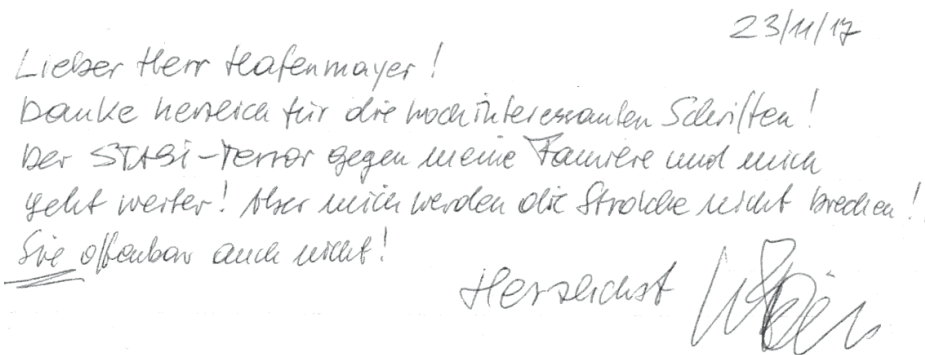 23/11/17
Lieber Herr Hafenmayer!
Danke herzlich für die hochinteressanten Schriften!
Der STASI-Terror gegen meine Familie und mich
geht weiter! Aber mich werden die Strolche nicht brechen!
Sie offenbar auch nicht!
Herzlichst